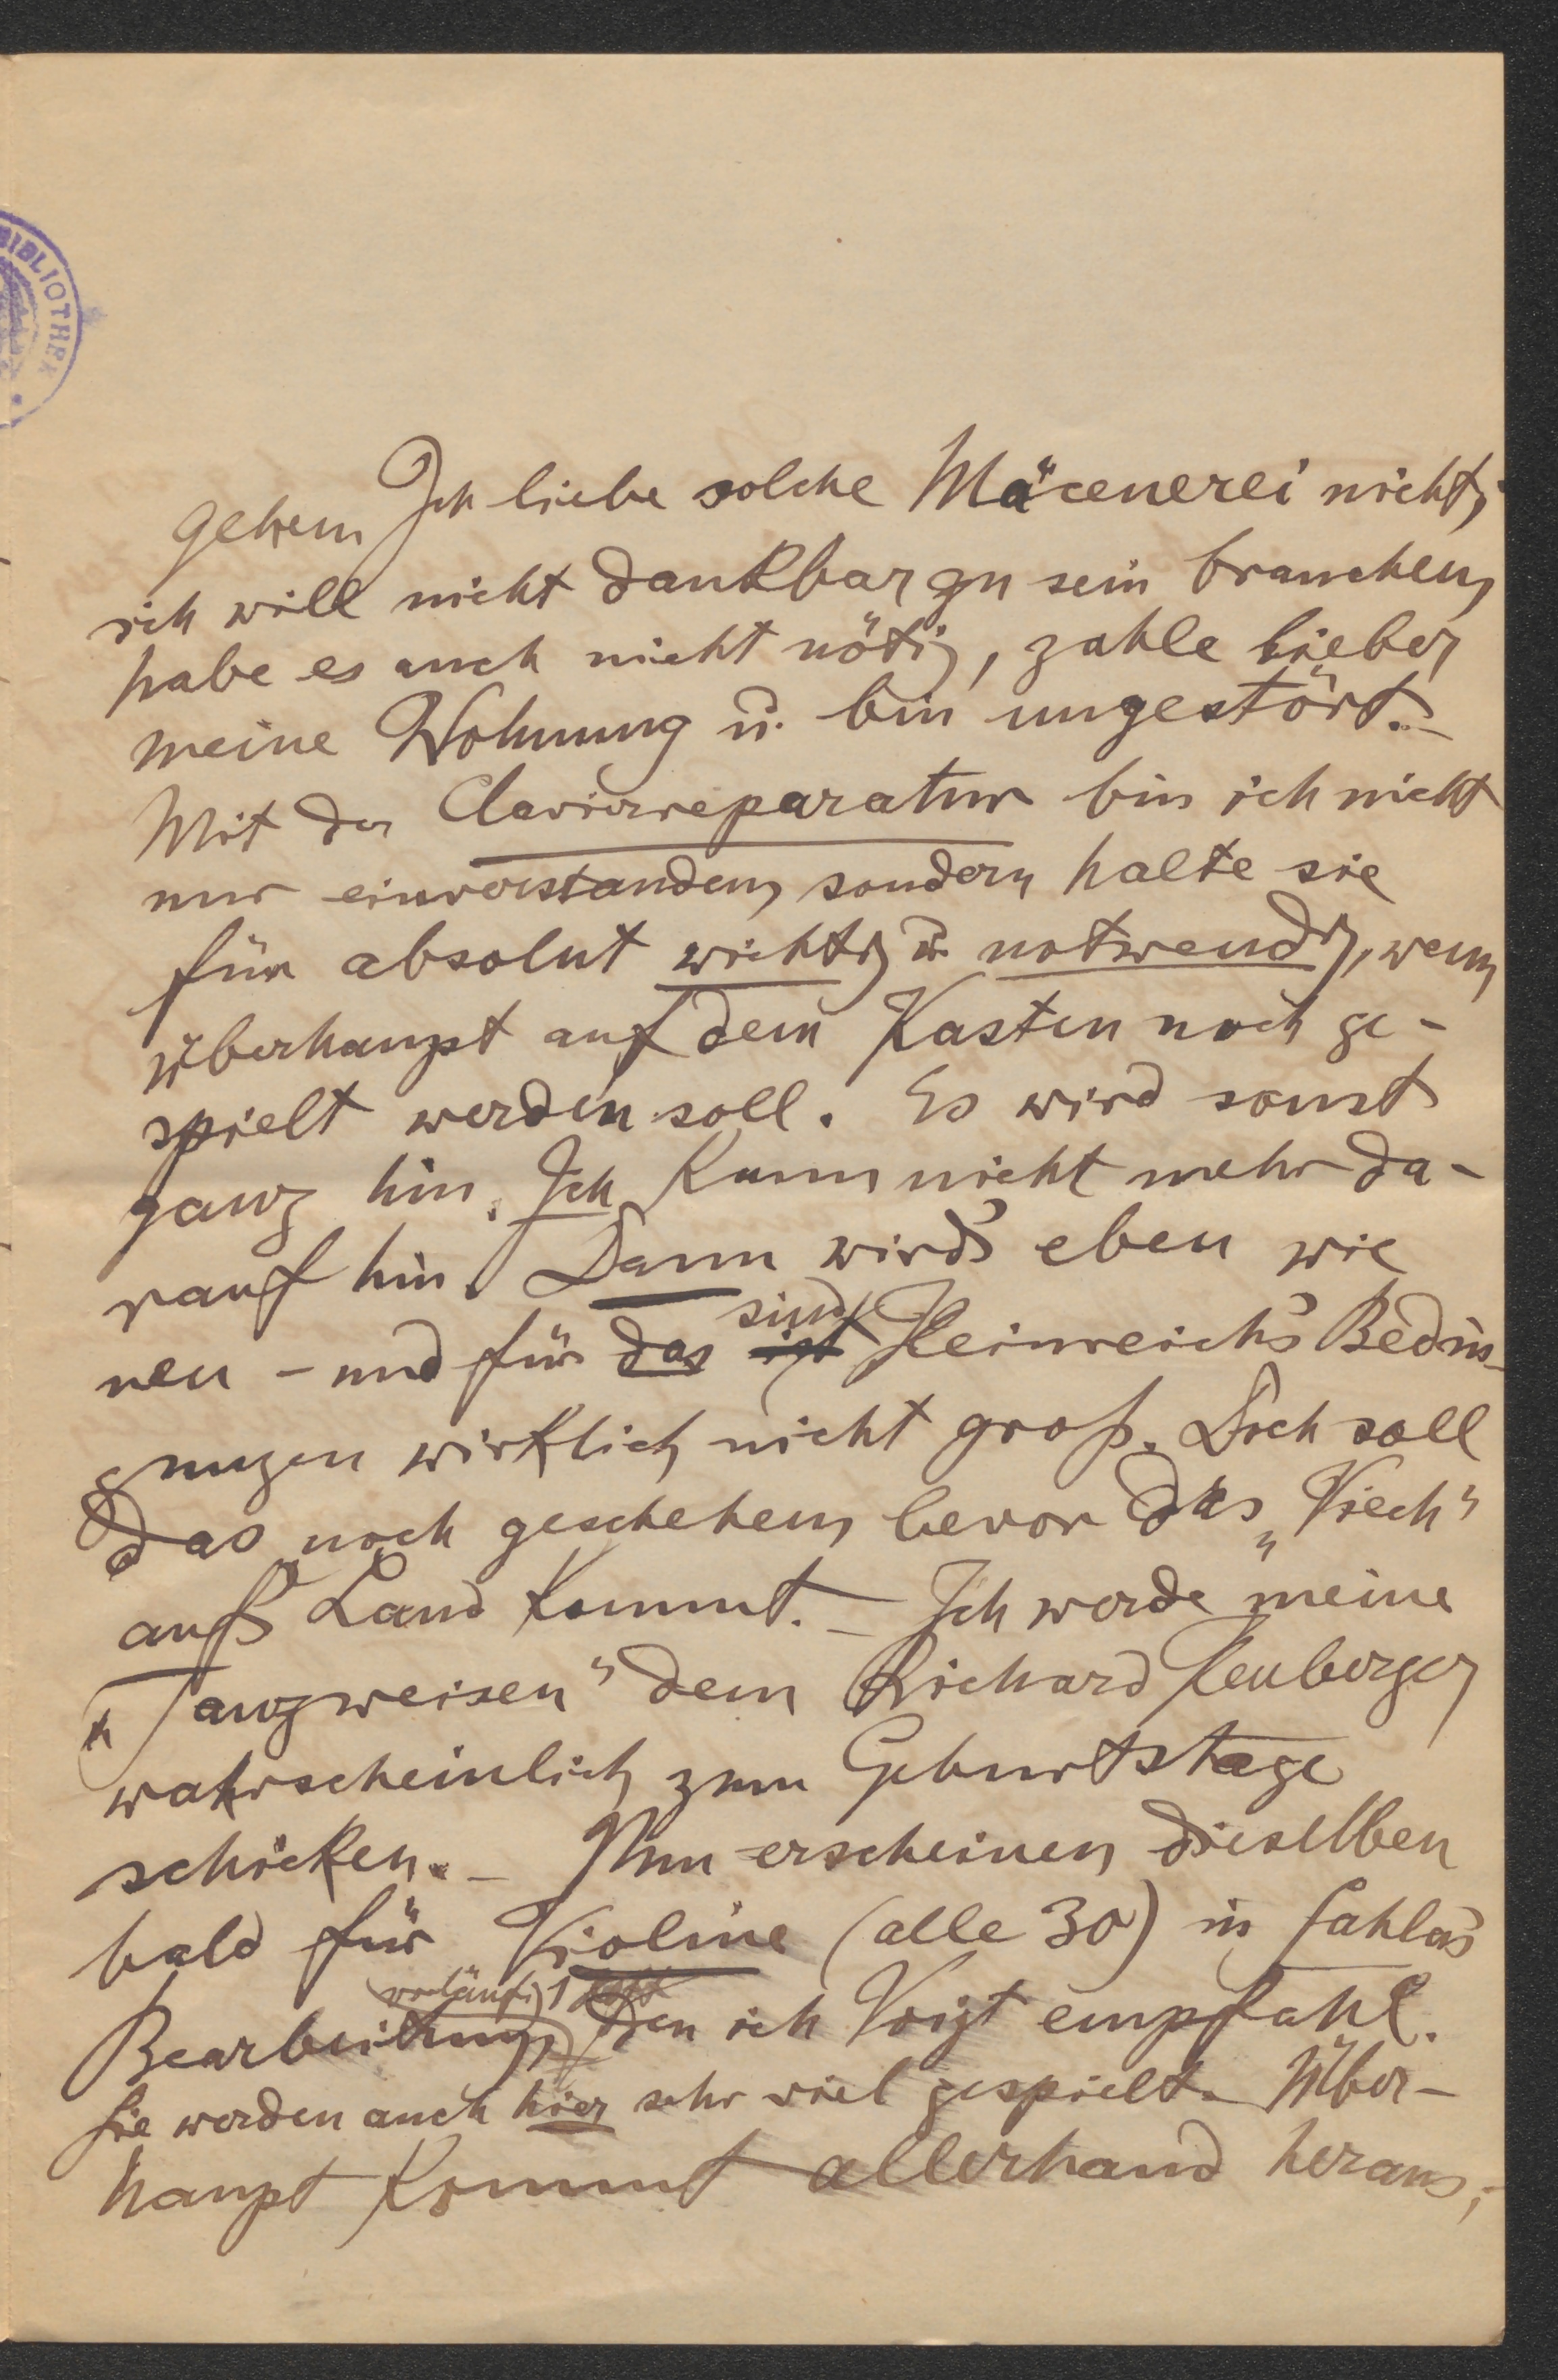 BIBLIOTHEK
gehen. Ich liebe solche Mäcenerei nicht,
ich will nicht dankbar zu sein brauchen,
habe es auch nicht nötig, zahle lieber
meine Wohnung u. bin ungestört. –
Mit der Clavierreparatur bin ich nicht
nur einverstanden, sondern halte sie
für absolut wichtig u. notwendig, wenn
überhaupt auf dem Kasten noch ge-
spielt werden soll. Es wird sonst
ganz hin. Ich kann nicht mehr da-
rauf hin. Dann wird's eben wie
neu – und für das ist sind Heinreich's Bedin-
gungen wirklich nicht groß. Doch soll
das noch geschehen, bevor das „Viech"
auf's Land kommt. – Ich werde meine
„Tanzweisen" dem Richard Heuberger
wahrscheinlich zum Geburtstage
schicken. – Nun erscheinen dieselben
bald für Violine (alle 30) in Sahla's
vorläufig 1 Heft
Bearbeitung, den ich Voigt empfahl.
Sie werden auch hier sehr viel gespielt. Über-
haupt kommt allerhand heraus;